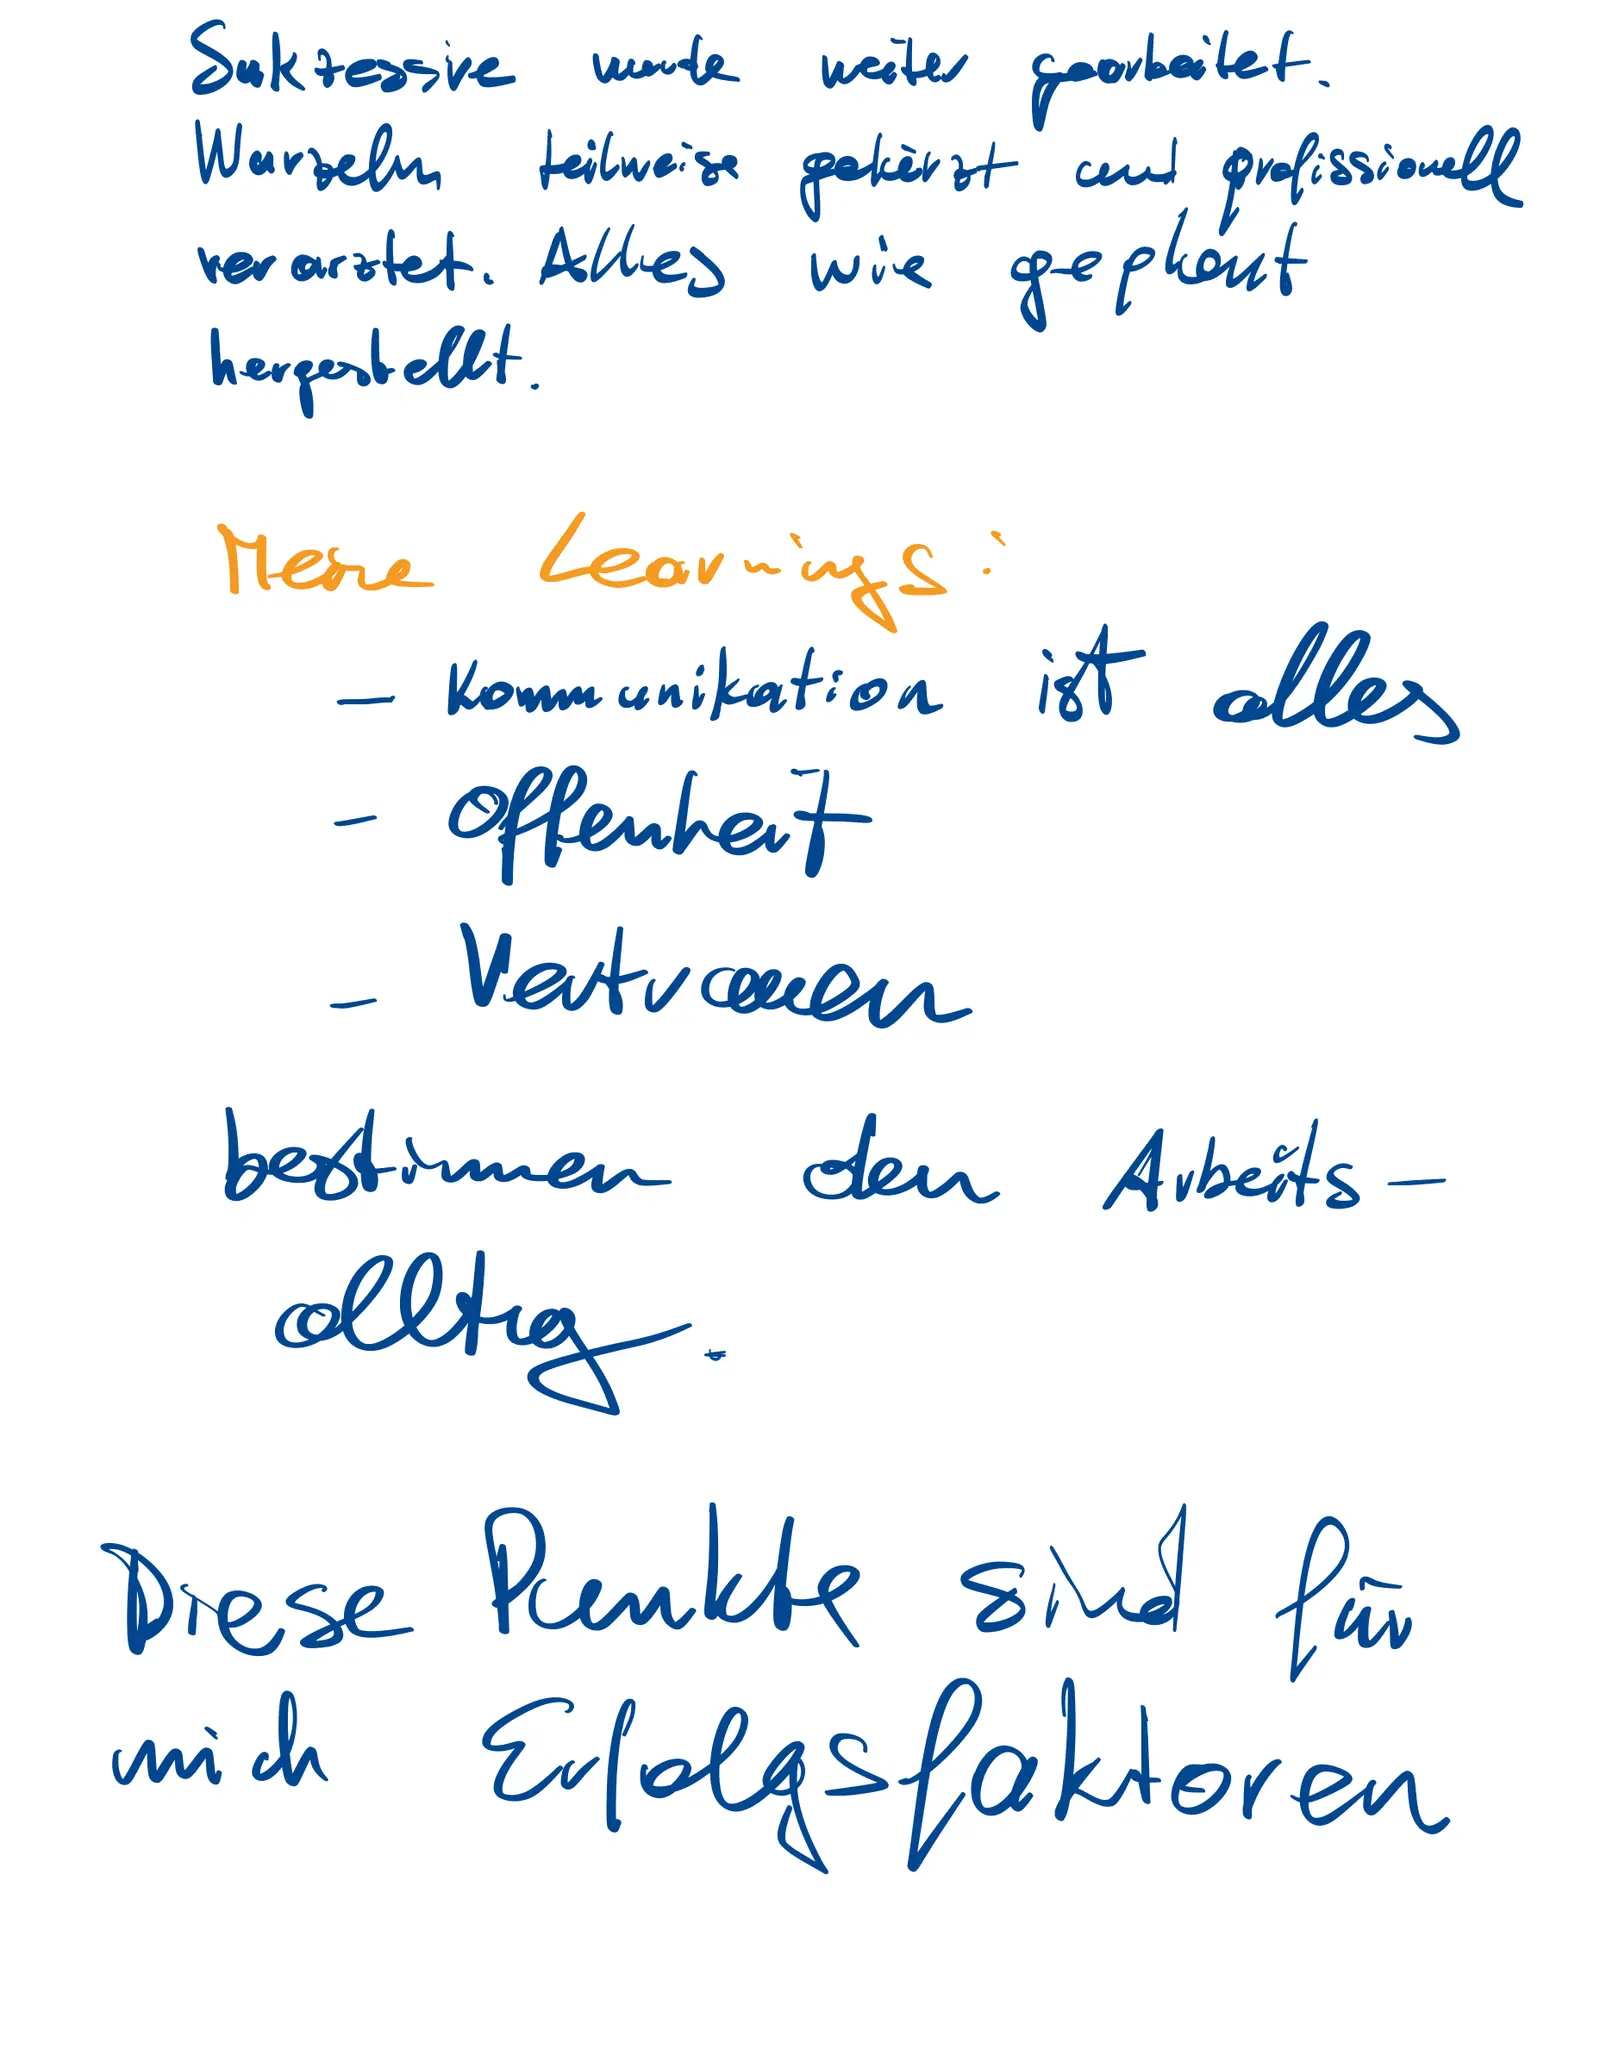 Sukzessive wurde weiter gearbeitet.
Wurzeln teilweise gekürzt und professionell
verarztet. Alles wie geplant
hergestellt.
Meine Learnings:
- Kommunikation ist alles
- Offenheit
- Vertrauen
bestimmen den Arbeits-
alltag.
Diese Punkte sind für
mich Erfolgsfaktoren